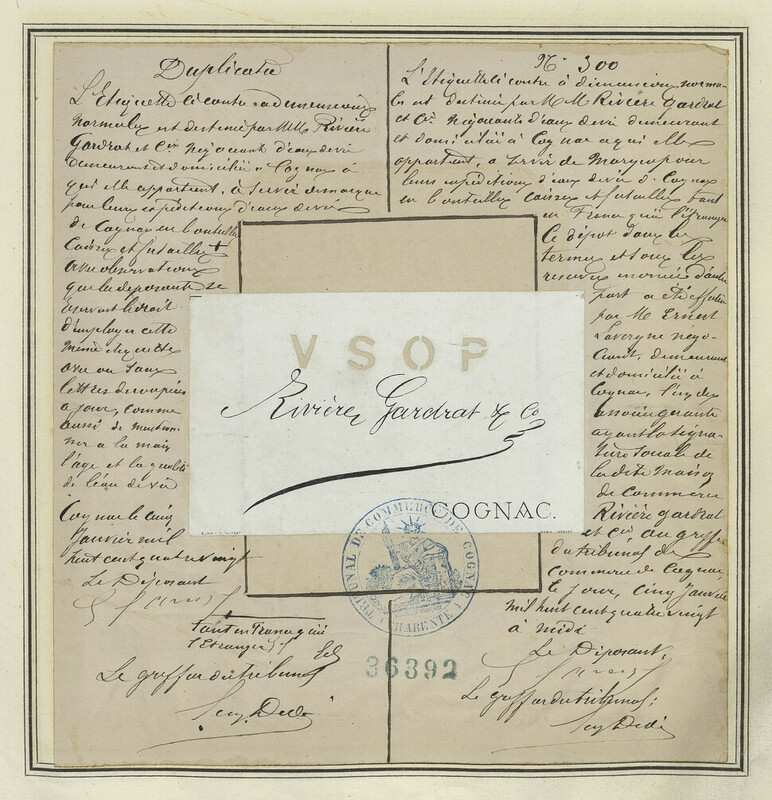 Duplicata
L'Etiquette ci contre a dimensions
normales est destiné par MM Rivière
Gardrat et Cie Negociants d'eaux de vie
demeurant et domiciliés a Cognac à
qui elle appartient, à servir de marque
pour leurs expéditions d'eaux de vie
de Cognac en bouteilles
Caisses et futailles +
avec observations
que le déposant se
reservant le droit
d'employer cette
même etiquette
avec ou sans
lettres découpées
a jour, comme
aussi de mention
ner a la main
l'âge et la qualité
de l'eau de vie
Cognac le cinq
Janvier mil
huit cent quatre vingt
Le Déposant
+ tant en France qu'à
l'Etranger
Le greffier du tribunal
No 300
L'Etiquette ci contre à dimensions norma-
les est destiné par M M Rivière Gardrat
et Cie Négociants d'eaux de vie demeurant
et domiciliés à Cognac a qui elle
appartient, a servir de marque pour
leurs expéditions d'eaux de vie de Cognac
en bouteilles caisses et futailles tant
en France qu'à l'étranger
Ce dépôt dans les
termes et sous les
reserves énoncées d'autre
part a été effectué
par M Ernest
Lavergne négo-
ciant, demeurant
et domicilié à
Cognac, l'un des
associés
ayant la signa-
ture sociale de
la dite maison
de Commerce
Rivière gardrat
et Cie, au greffe
du tribunal de
Commerce de Cognac
le jour, Cinq Janvier
mil huit cent quatre vingt
à midi
Le Déposant,
Le greffier du tribunal;
VSOP
Rivière Gardrat & Co
COGNAC.
TRIBUNAL DE COMMERCE DE COGNAC (CHARENTE)
36392